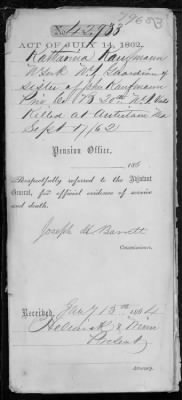 No 42.933
79683
ACT OF JULY 14, 1862.
Katharina Kaufmann
N York Guardian of
Sister of Jno Kaufmann
Co 20th N.Y. Vols
Killed at Antietam Md
Sept 17/62
Pension Office,
186
Respectfully referred to the Adjutant
General, for official evidence of service
and death.
Joseph H Barrett
Commissioner.
Received, Jany 13th 1864
Present,
Attorney.